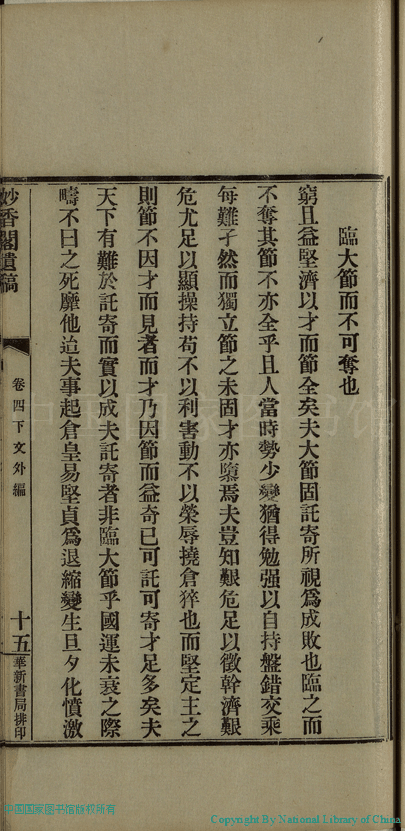 臨大節而不可奪也
窮且益堅濟以才而節全矣夫大節固託寄所視為成敗也臨之而
不奪其節不亦全乎且人當時勢少變猶得勉强以自持盤錯交乘
每難孑然而獨立節之未固才亦隳焉夫豈知艱危足以徵幹濟艱
危尤足以顯操持苟不以利害動不以榮辱撓倉猝也而堅定主之
則節不因才而見者而才乃因節而益奇已可託可寄才足多矣夫
天下有難於託寄而實以成夫託寄者非臨大節乎國運未衰之際
疇不曰之死靡他迨夫事起倉皇易堅貞為退縮變生旦夕化憤激
妙香閣遺稿
卷四下文外編
十五
華新書局排印
中国国家图书馆
中国国家图书馆版权所有
Copyright By National Library of China